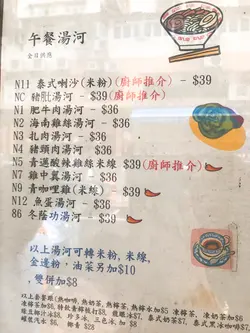 午餐湯河
全日供應
N11 泰式喇沙(米粉)(廚師推介) - $39
NC 豬𦟌湯河 - $39(廚師推介)
N1 肥牛肉湯河 - $36
N2 海南雞絲湯河 - $36
N3 扎肉湯河 - $36
N4 豬頸肉湯河 - $36
N5 青邁酸辣雞絲米線 $39(廚師推介)
N7 雞中翼湯河 - $36
N9 青咖哩雞(米線) - $39
N12 魚蛋湯河 - $36
86 冬蔭功湯河 - $39
以上湯河可轉米粉,米線,
金邊粉,油菜另加$10
雙拼加$8